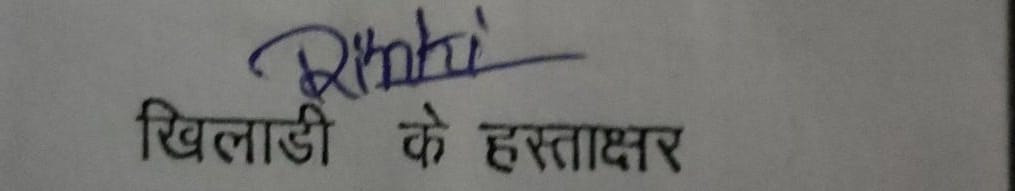 Rinki
खिलाडी के हस्ताक्षर